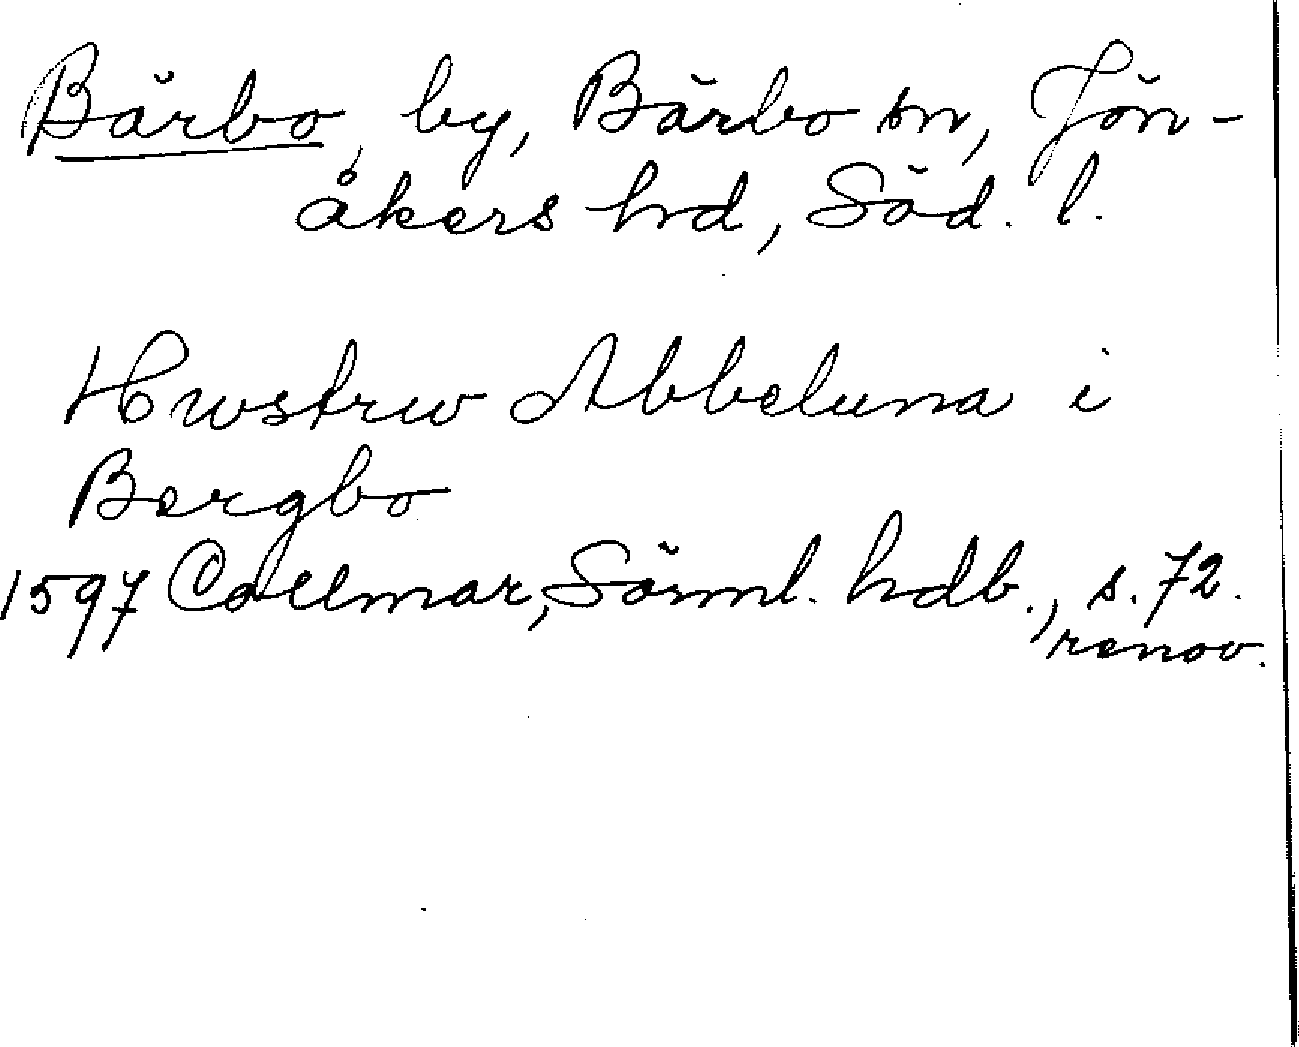 Bärbo, by, Bärbo sn, Jön-
åkers hrd, Söd. l.
Hwstrw Abbeluna i
Bergbo
1597 Collmar, Sörml. hdb., s. 72.
renov.